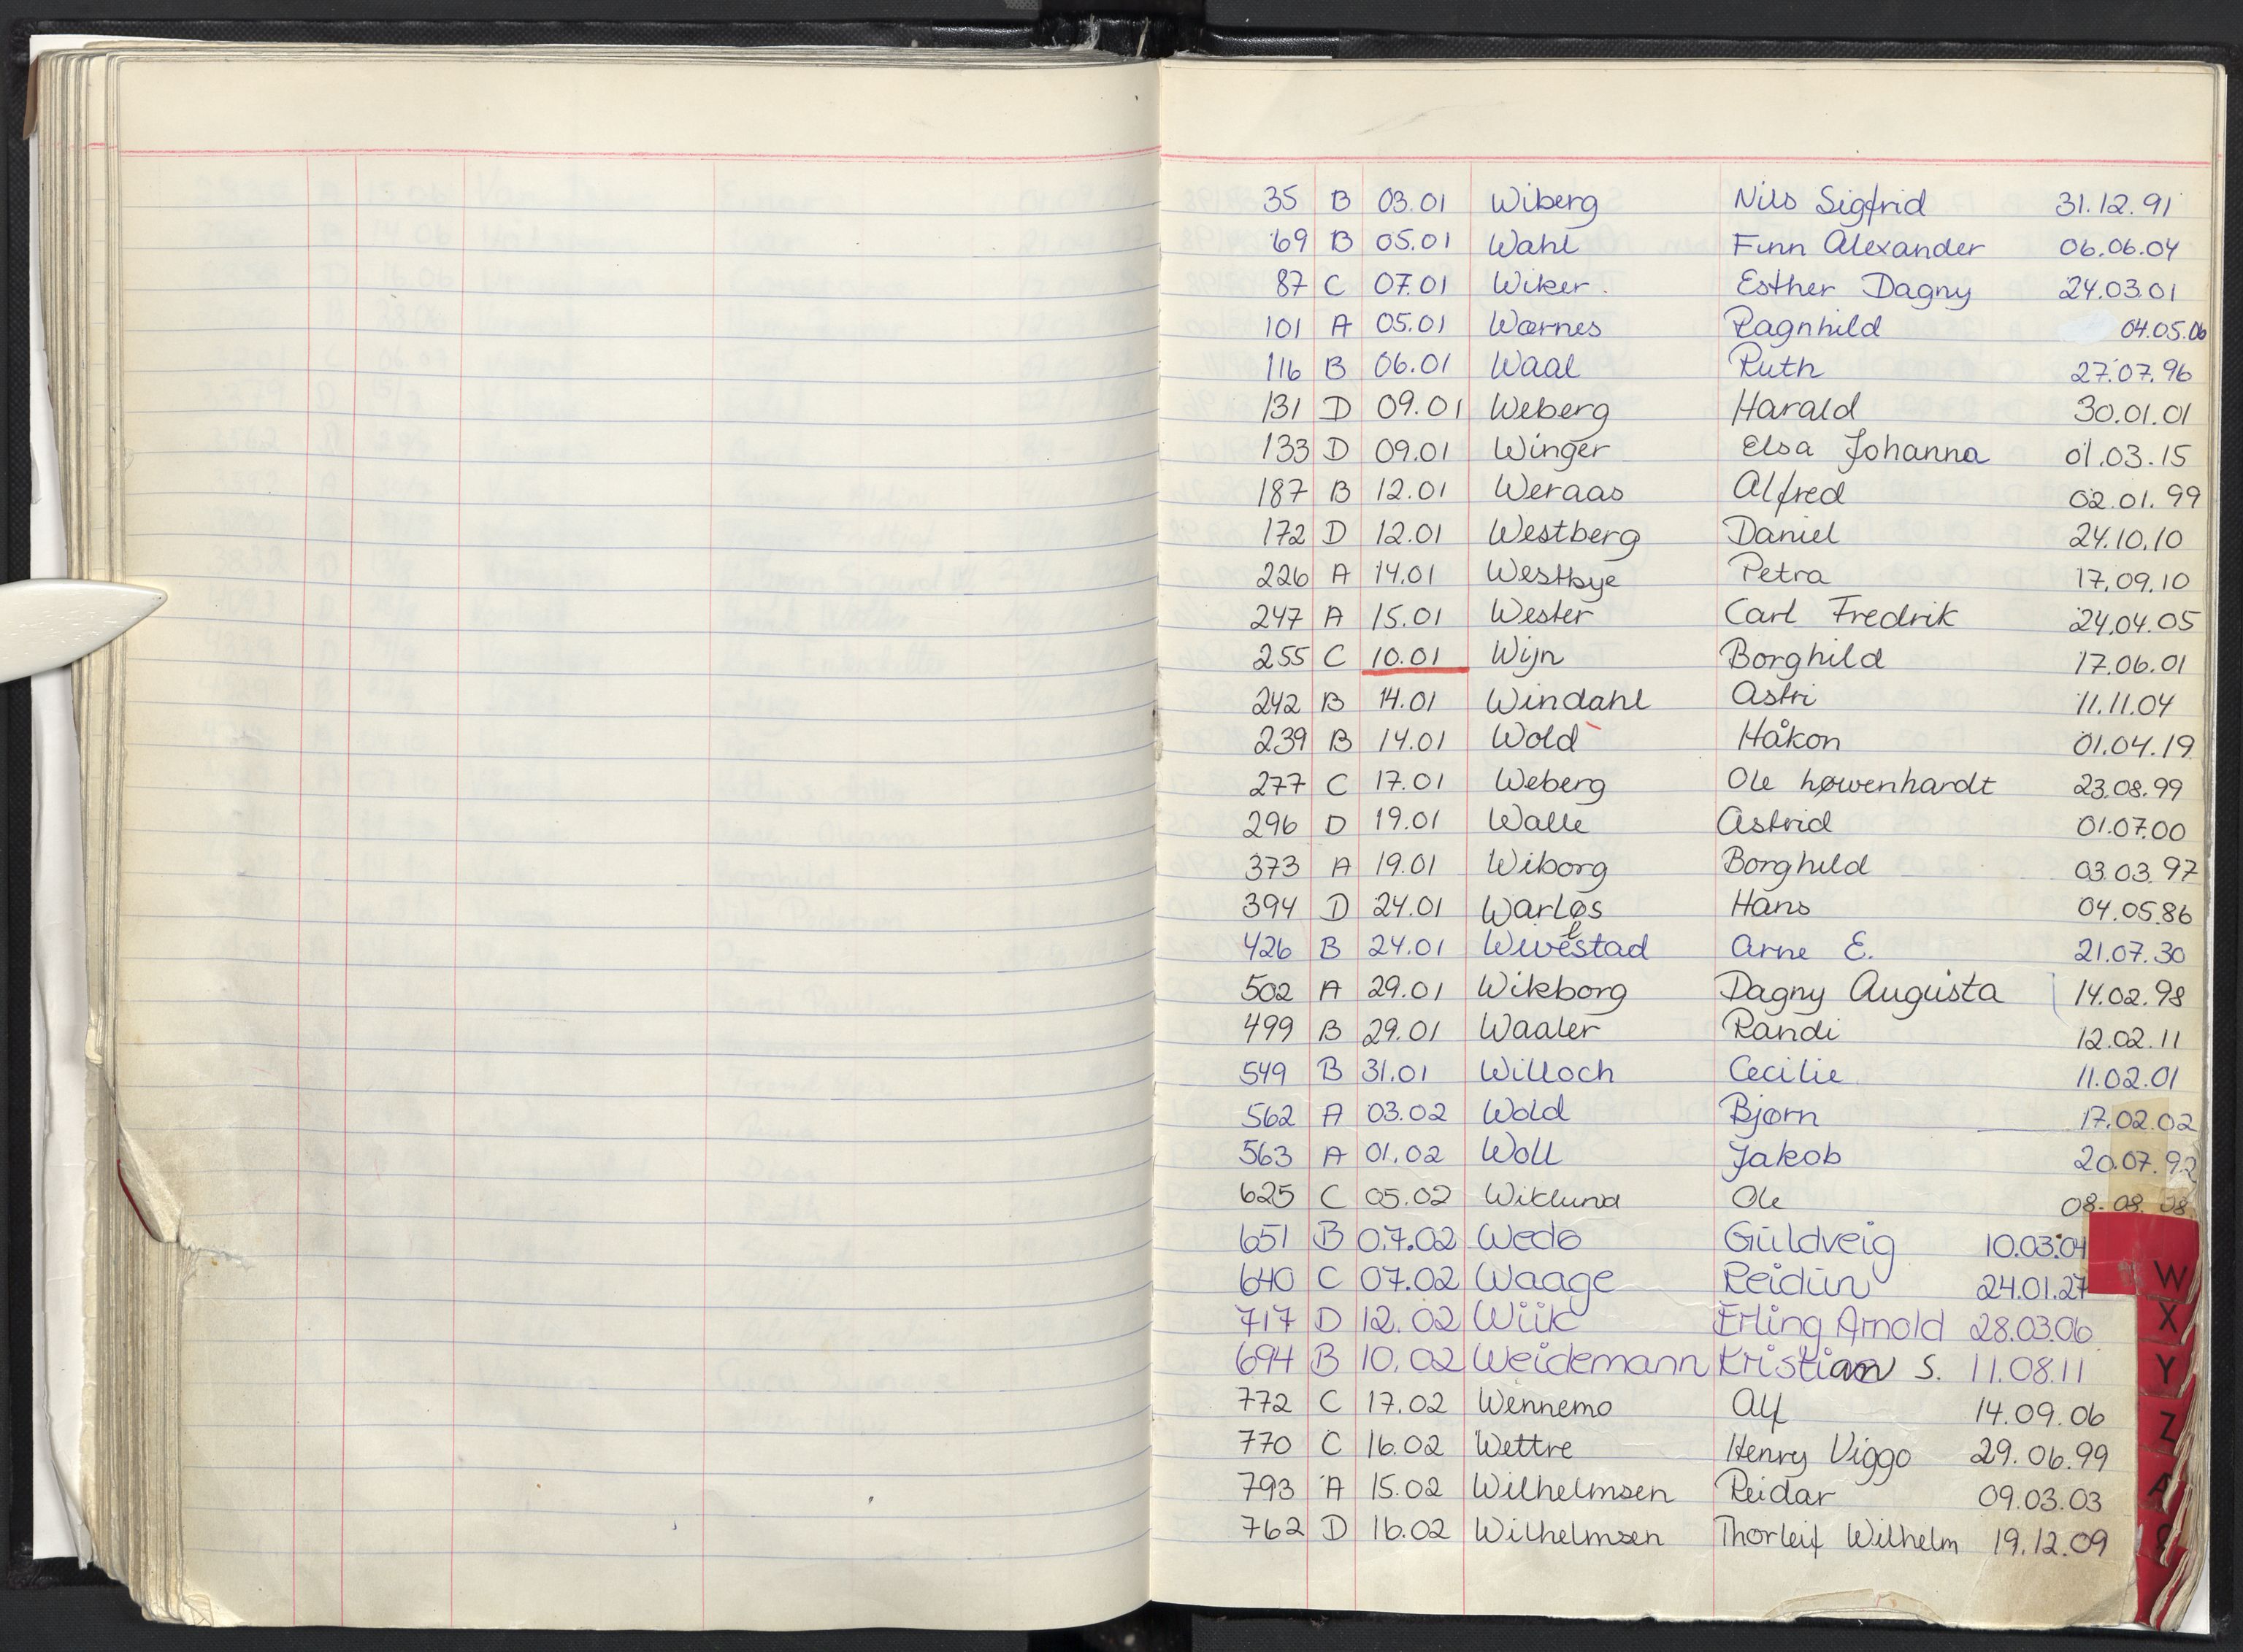 35 B 03.01 Wiberg Nils Sigfrid 31.12.91
69 B 05.01 Wahl Finn Alexander 06.06.04
87 C 07.01 Wiker Esther Dagny 24.03.01
101 A 05.01 Wærnes Ragnhild 04.05.06
116 B 06.01 Waal Ruth 27.07.96
131 D 09.01 Weberg Harald 30.01.01
133 D 09.01 Winger Elsa Johanna 01.03.15
187 B 12.01 Weraas Alfred 02.01.99
172 D 12.01 Westberg Daniel 24.10.10
226 A 14.01 Westbye Petra 17.09.10
247 A 15.01 Wester Carl Fredrik 24.04.05
255 C 10.01 Wijn Borghild 17.06.01
242 B 14.01 Windahl Astri 11.11.04
239 B 14.01 Wold Håkon 01.04.19
277 C 17.01 Weberg Ole høwenhardt 23.08.99
296 D 19.01 Walle Astrid 01.07.00
373 A 19.01 Wiborg Borghild 03.03.97
394 D 24.01 Warløs Hans 04.05.86
426 B 24.01 Wivestad Arne E. 21.07.30
502 A 29.01 Wikborg Dagny Augusta 14.02.98
499 B 29.01 Waaler Randi 12.02.11
549 B 31.01 Willoch Cecilie 11.02.01
562 A 03.02 Wold Bjørn 17.02.02
563 A 01.02 Woll Jakob 20.07.92
625 C 05.02 Wiklund Ole 08.08.08
651 B 07.02 Wedø Guldveig 10.03.04
640 C 07.02 Waage Reidun 24.01.27
W
717 D 12.02 Wiik Erling Arnold 28.03.06
X
694 B 10.02 Weidemann Kristian S. 11.08.11
Y
772 C 17.02 Wennemo Alf 14.09.06
Z
770 C 16.02 Wettre Henry Viggo 29.06.99
793 A 15.02 Wilhelmsen Reidar 09.03.03
762 D 16.02 Wilhelmsen Thorleif Wilhelm 19.12.09